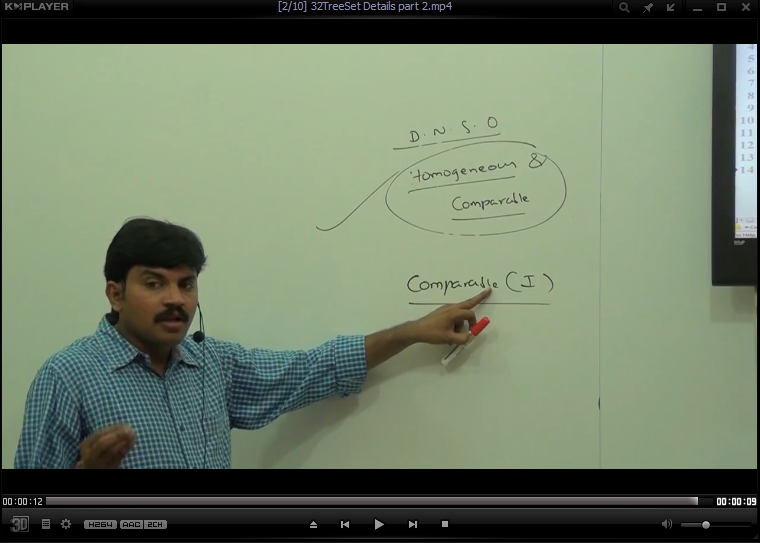 K-MPLAYER
[2/10] 32TreeSet Details part 2.mp4
D. N. S. O
Homogeneous &
Comparable
Comparable (I)
8
9
10
11
12
13
14
00:00:12
00:00:09
3D
H264
AAC
2CH